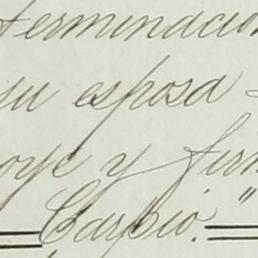 terminacion
su esposa
oye y firm
Carpio."